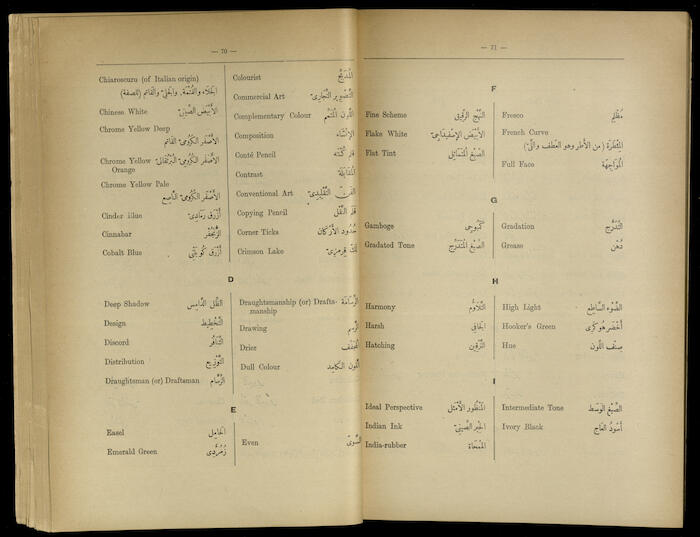 — 70 —
Chiaroscuro (of Italian origin)
الجلاء والقتمة، والجلي والقاتم (للصفة)
Chinese White الأبيض الصينى
Chrome Yellow Deep
الأصفر الكرومى القاتم
Chrome Yellow الأصفر الكرومى البرتقالى
Orange
Chrome Yellow Pale
الأصفر الكرومى الناصع
Cinder Blue أزرق رمادى
Cinnabar الزنجفر
Cobalt Blue أزرق كوبلتى
Colourist
Commercial Art التصوير التجارى
Complementary Colour اللون المتمم
Composition الإنشاء
Conté Pencil قلم كنته
Contrast المقابلة
Conventional Art الفن التقليدى
Copying Pencil قلم النقل
Corner Ticks حدود الأركان
Crimson Lake لك قرمزى
D
Deep Shadow الظل الدامس
Design التخطيط
Discord التنافر
Distribution التوزيع
Draughtsman (or) Draftsman الرسام
Draughtsmanship (or) Drafts- الرسامة
manship
Drawing الرسم
Drier المجفف
Dull Colour اللون الكامد
E
Easel الحامل
Emerald Green زمردى
Even المستوى
— 71 —
F
Fine Scheme النهج الرقيق
Flake White الأبيض الإسفيداجى
Flat Tint الصبغ المتماثل
Fresco
French Curve
Full Face المواجهة
G
Gamboge كمبوجى
Gradated Tone الصبغ المتدرج
Gradation التدرج
Grease دهن
H
Harmony التلاؤم
Harsh الجافى
Hatching الترقين
High Light الضوء الساطع
Hooker's Green أخضر هوكرى
Hue صنف اللون
I
Ideal Perspective المنظور الأمثل
Indian Ink الحبر الصينى
India-rubber الممحاة
Intermediate Tone الصبغ الوسط
Ivory Black أسود العاج